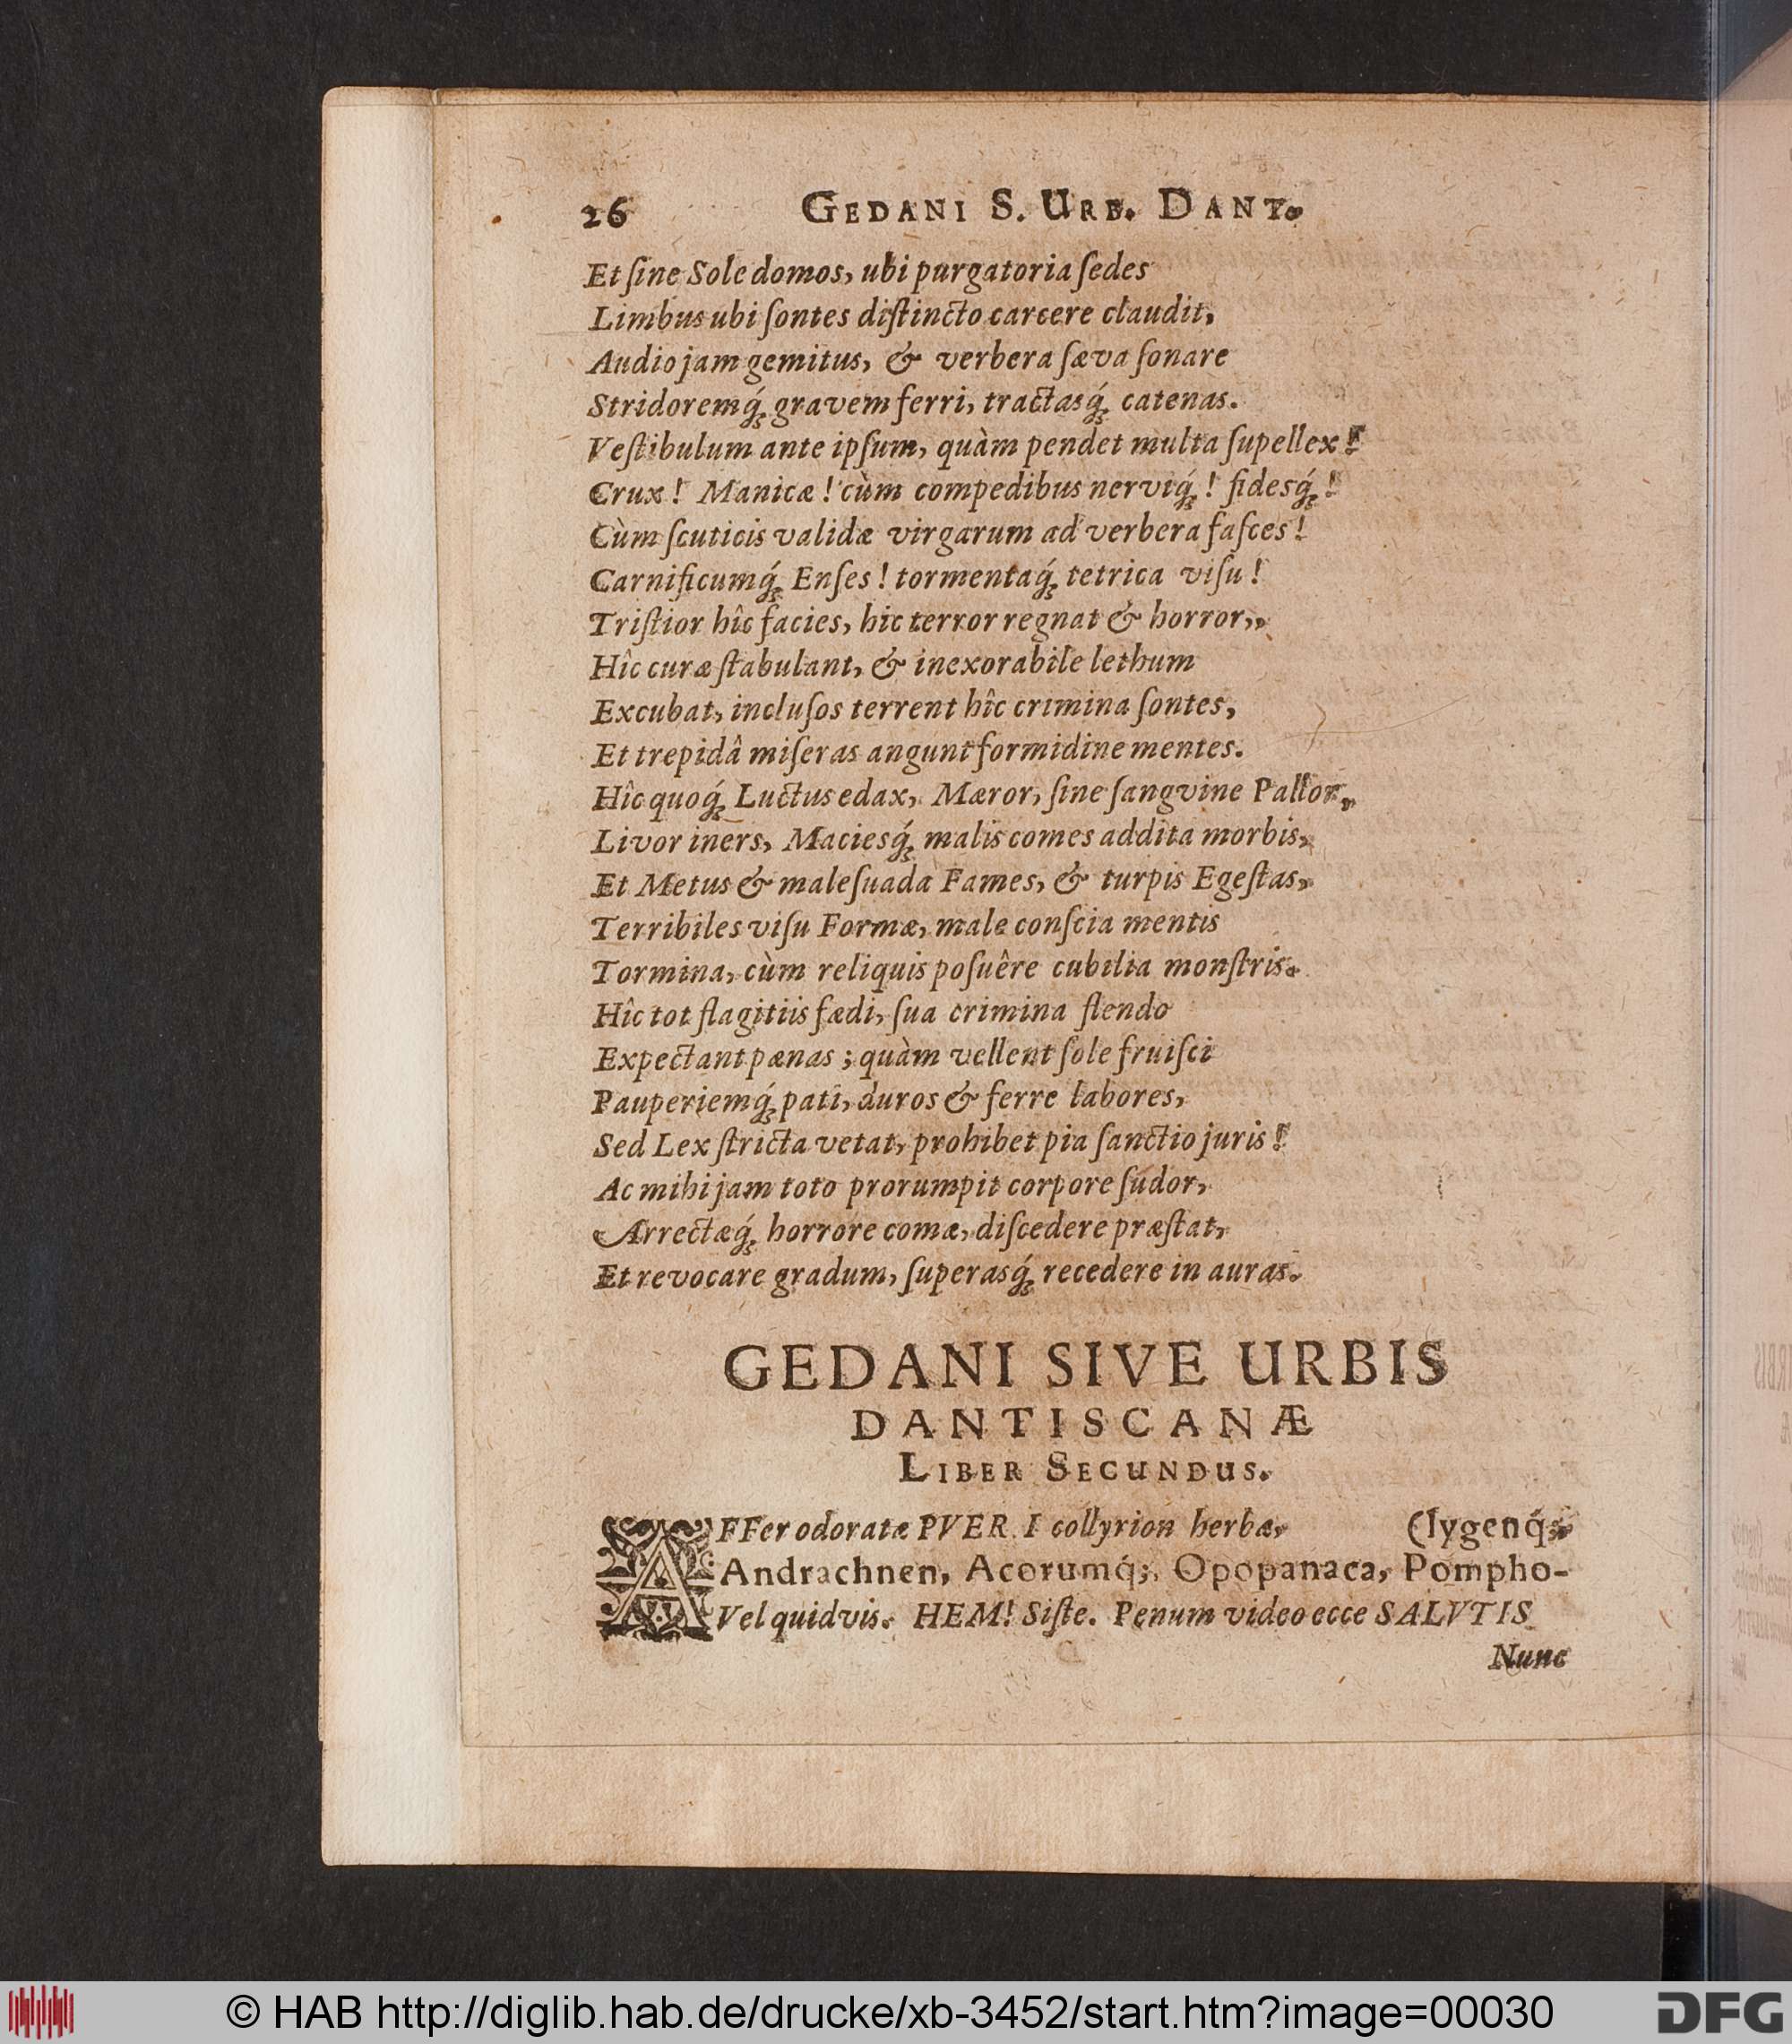 26 GEDANI S. URB. DANT.
Et ſine Sole domos, ubi purgatoria ſedes
Limbus ubi ſontes diſtincto carcere claudit,
Audio jam gemitus, & verbera ſæva ſonare
Stridoremq́; gravem ferri, tractasq́; catenas.
Veſtibulum ante ipſum, quàm pendet multa ſupellex!
Crux! Manicæ! cùm compedibus nerviq́;! fidesq́;!
Cùm ſcuticis validæ virgarum ad verbera faſces!
Carnificumq́; Enſes! tormentaq́; tetrica viſu!
Triſtior hîc facies, hic terror regnat & horror,,
Hîc curæ ſtabulant, & inexorabile lethum
Excubat, incluſos terrent hîc crimina ſontes,
Et trepidâ miſeras angunt formidine mentes.
Hîc quoq́; Luctus edax, Mæror, ſine ſangvine Pallor,
Livor iners, Maciesq́; malis comes addita morbis,
Et Metus & maleſuada Fames, & turpis Egeſtas,
Terribiles viſu Formæ, male conſcia mentis
Tormina, cùm reliquis poſuêre cubilia monſtris.
Hîc tot flagitiis fædi, ſua crimina flendo
Expectant pænas; quàm vellent ſole fruiſci
Pauperiemq́; pati, duros & ferre labores,
Sed Lex ſtricta vetat, prohibet pia ſanctio juris!
Ac mihi jam toto prorumpit corpore ſudor,
Arrectæq́; horrore comæ, diſcedere præſtat,
Et revocare gradum, ſuperasq́; recedere in auras.
GEDANI SIVE URBIS
DANTISCANÆ
LIBER SECUNDUS.
AFFer odoratæ PVER I collyrion herbæ, (lygenq́;
Andrachnen, Acorumq́;, Opopanaca, Pompho-
Vel quidvis. HEM! Siſte. Penum video ecce SALVTIS
Nunc
© HAB http://diglib.hab.de/drucke/xb-3452/start.htm?image=00030
DFG